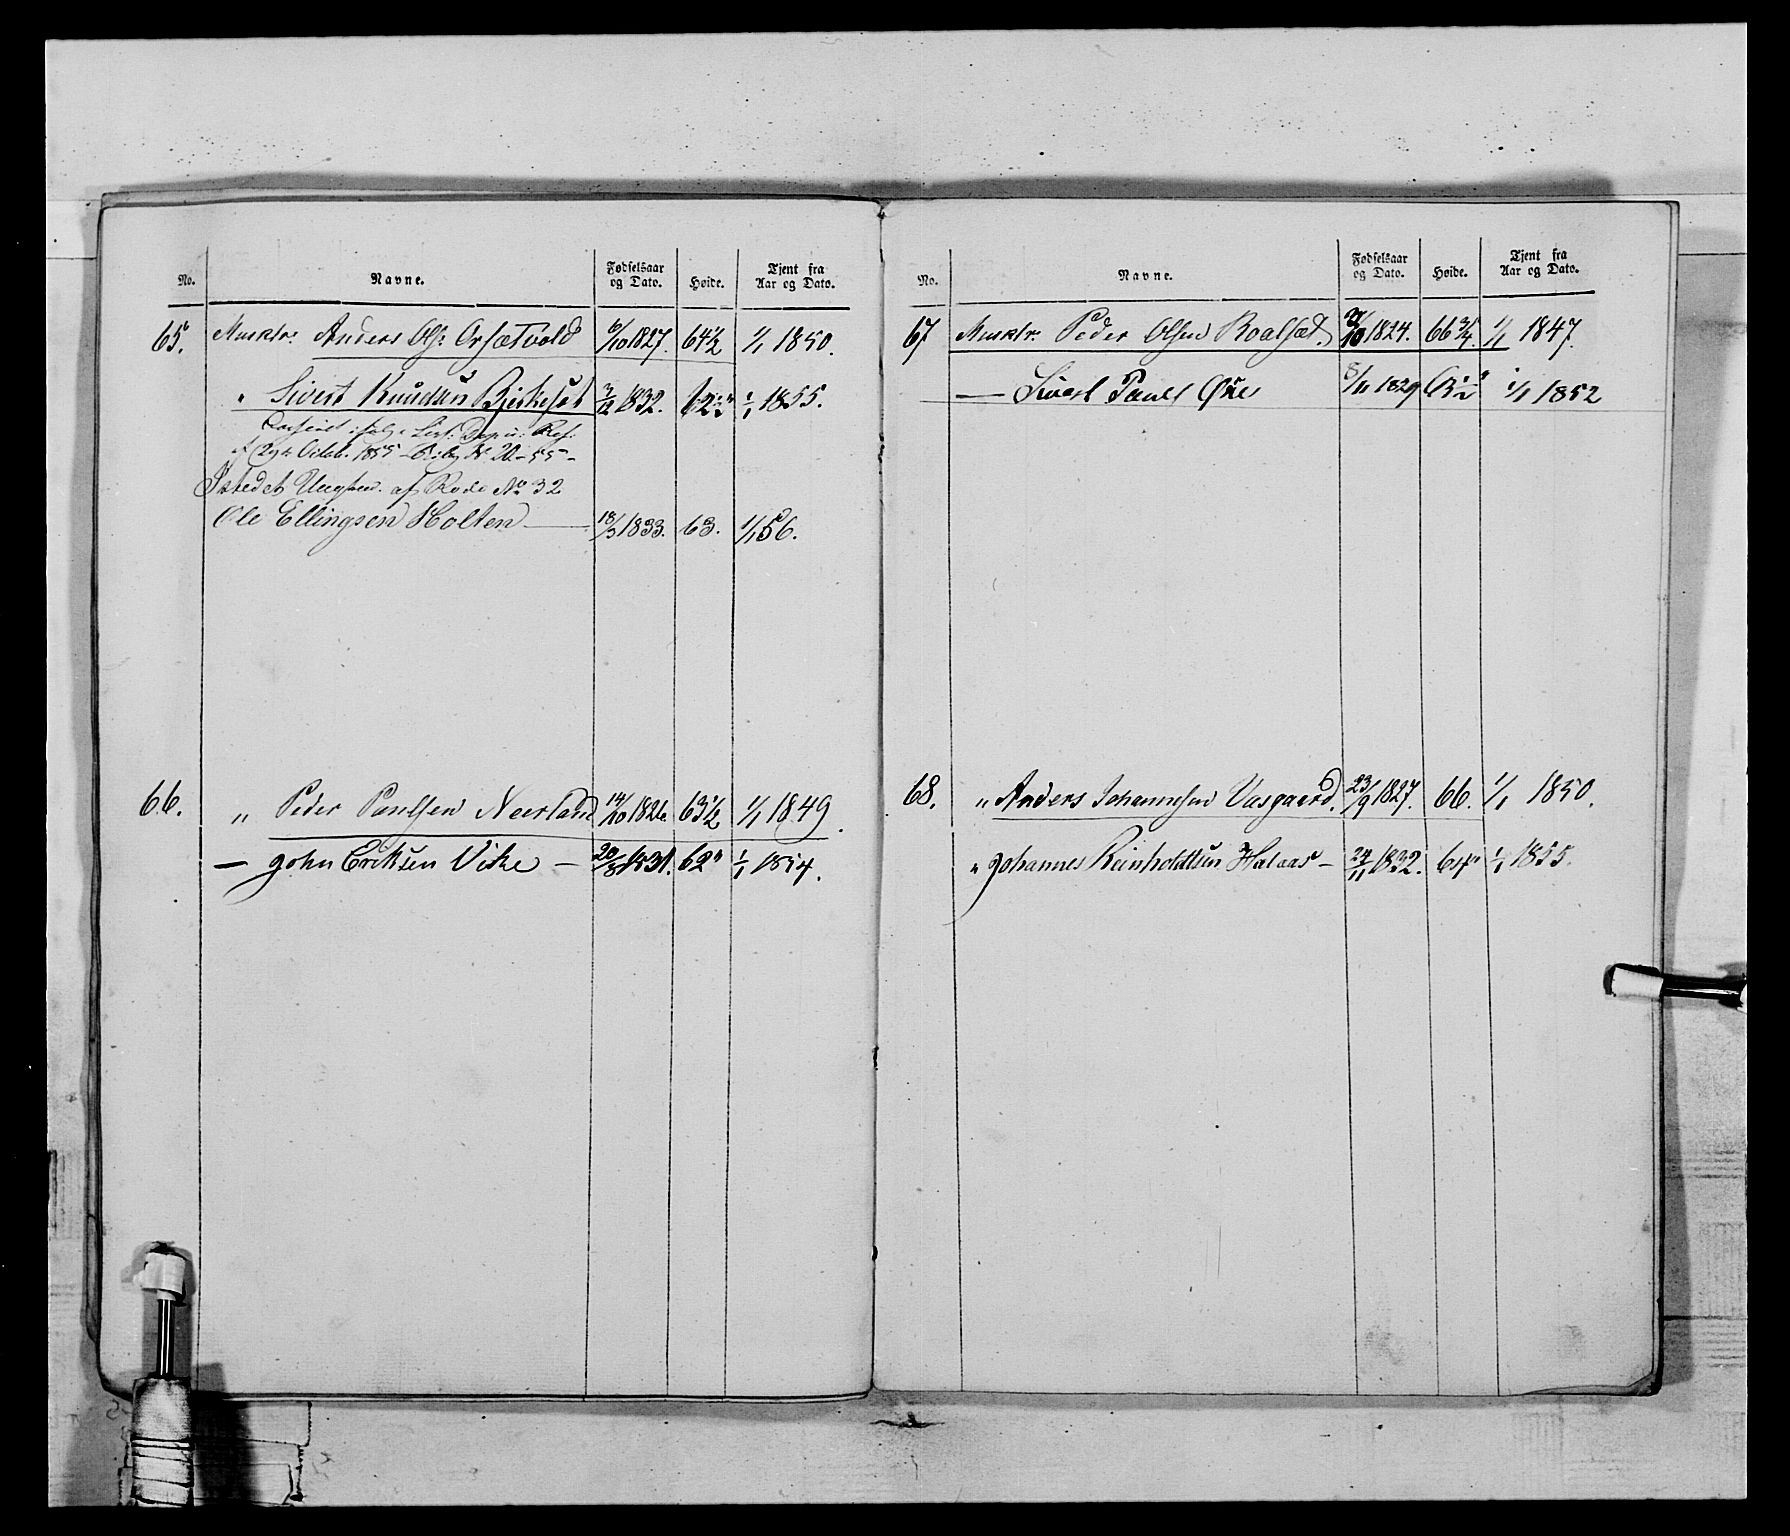 No. Navne. Fødselsaar og Dato. Høide. Tjent fra Aar og Dato.
65. Musktr. Anders Ols: Orsætvold 6/10 1827. 64½ 1/1 1850.
" Sivert Knudsen Birkeset 3/12 1832. 62½" 1/1 1855.
Casseret ifølge
af 29de Octob. 1855 - No 20 - 55 -
Istedet Ungsm. af Rode No 32
Ole Ellingsen Holten 18/3 1833. 63. 1/1 56.
66. " Peder Paulsen Neerland 14/10 1826. 63½ 1/1 1849.
— John Eriksen Vike — 20/8 1831. 62" 1/1 1854.
No. Navne. Fødselsaar og Dato. Høide. Tjent fra Aar og Dato.
67 Musktr. Peder Olsen Roalsæt. /10 1824. 66¾ 1/1 1847.
— Sivert Pauls Øre 8/11 1829 63½" 1/1 1852
68. " Anders Johannesen Vasgaard. 23/9 1827. 66. 1/1 1850.
" Johannes Reinholdtsen Halaas — 24/11 1832. 64" 1/1 1855.